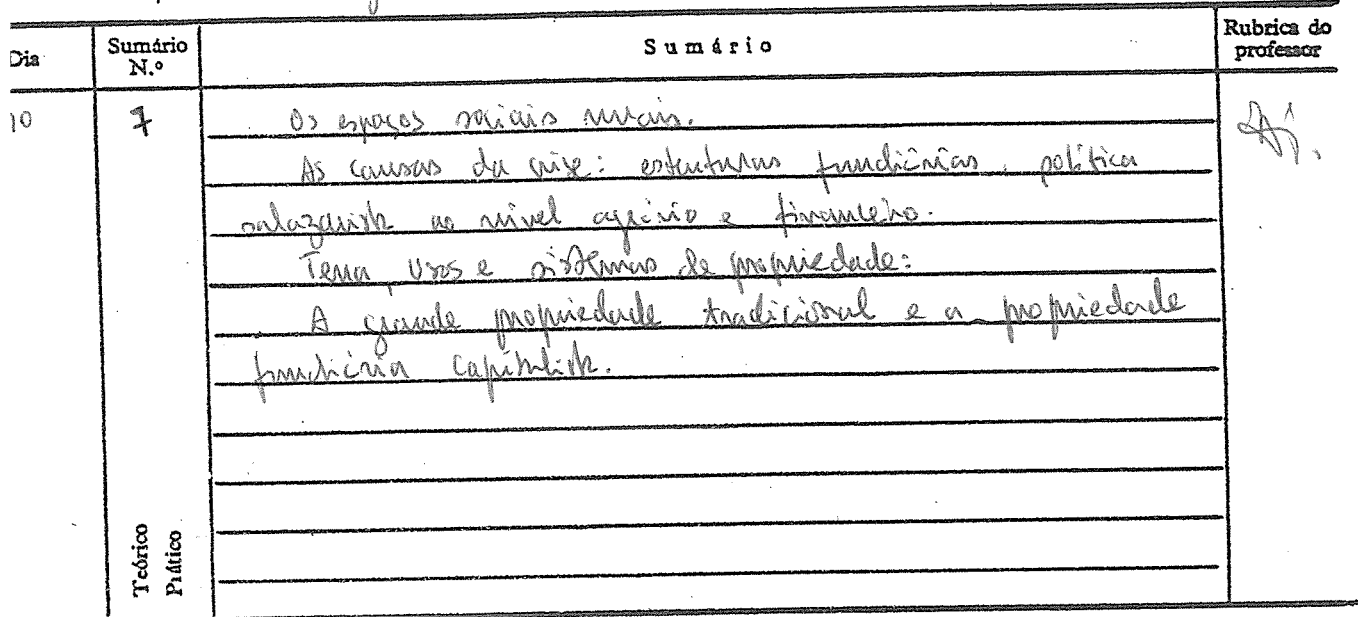 Dia
Sumário N.º
Sumário
Rubrica do professor
10
7
Os espaços sociais rurais.
As causas da crise: estruturas fundiárias, política
salazarista ao nível agrário e financeiro.
Terra, usos e sistemas de propriedade:
A grande propriedade tradicional e a propriedade
fundiária capitalista.
Teórico
Prático